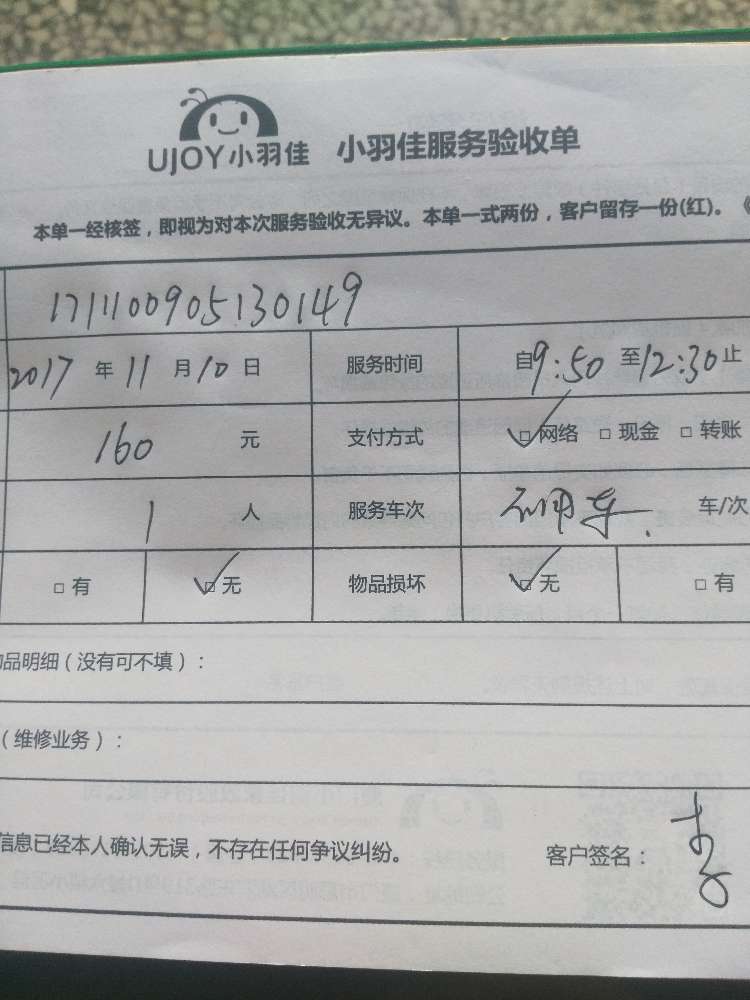 UJOY小羽佳 小羽佳服务验收单
本单一经核签，即视为对本次服务验收无异议。本单一式两份，客户留存一份(红)。《
1711100905130149
2017 年 11 月 10 日 服务时间 自9:50 至12:30止
160 元 支付方式 □网络 □ 现金 □ 转账
1 人 服务车次 车 车/次
□ 有 □无 物品损坏 □无 □ 有
品明细（没有可不填）：
（维修业务）：
信息已经本人确认无误，不存在任何争议纠纷。 客户签名：